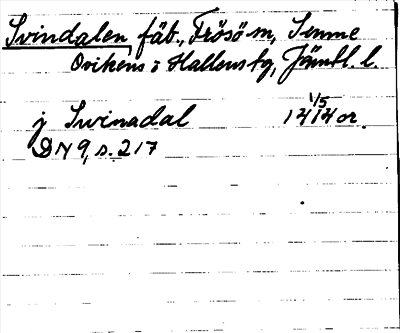 Svindalen fäb., Frösö sn, Sunne
Ovikens o Hallens tg, Jämtl. l.
j Swinadal 1414 1/5 or.
DN 9, s. 217